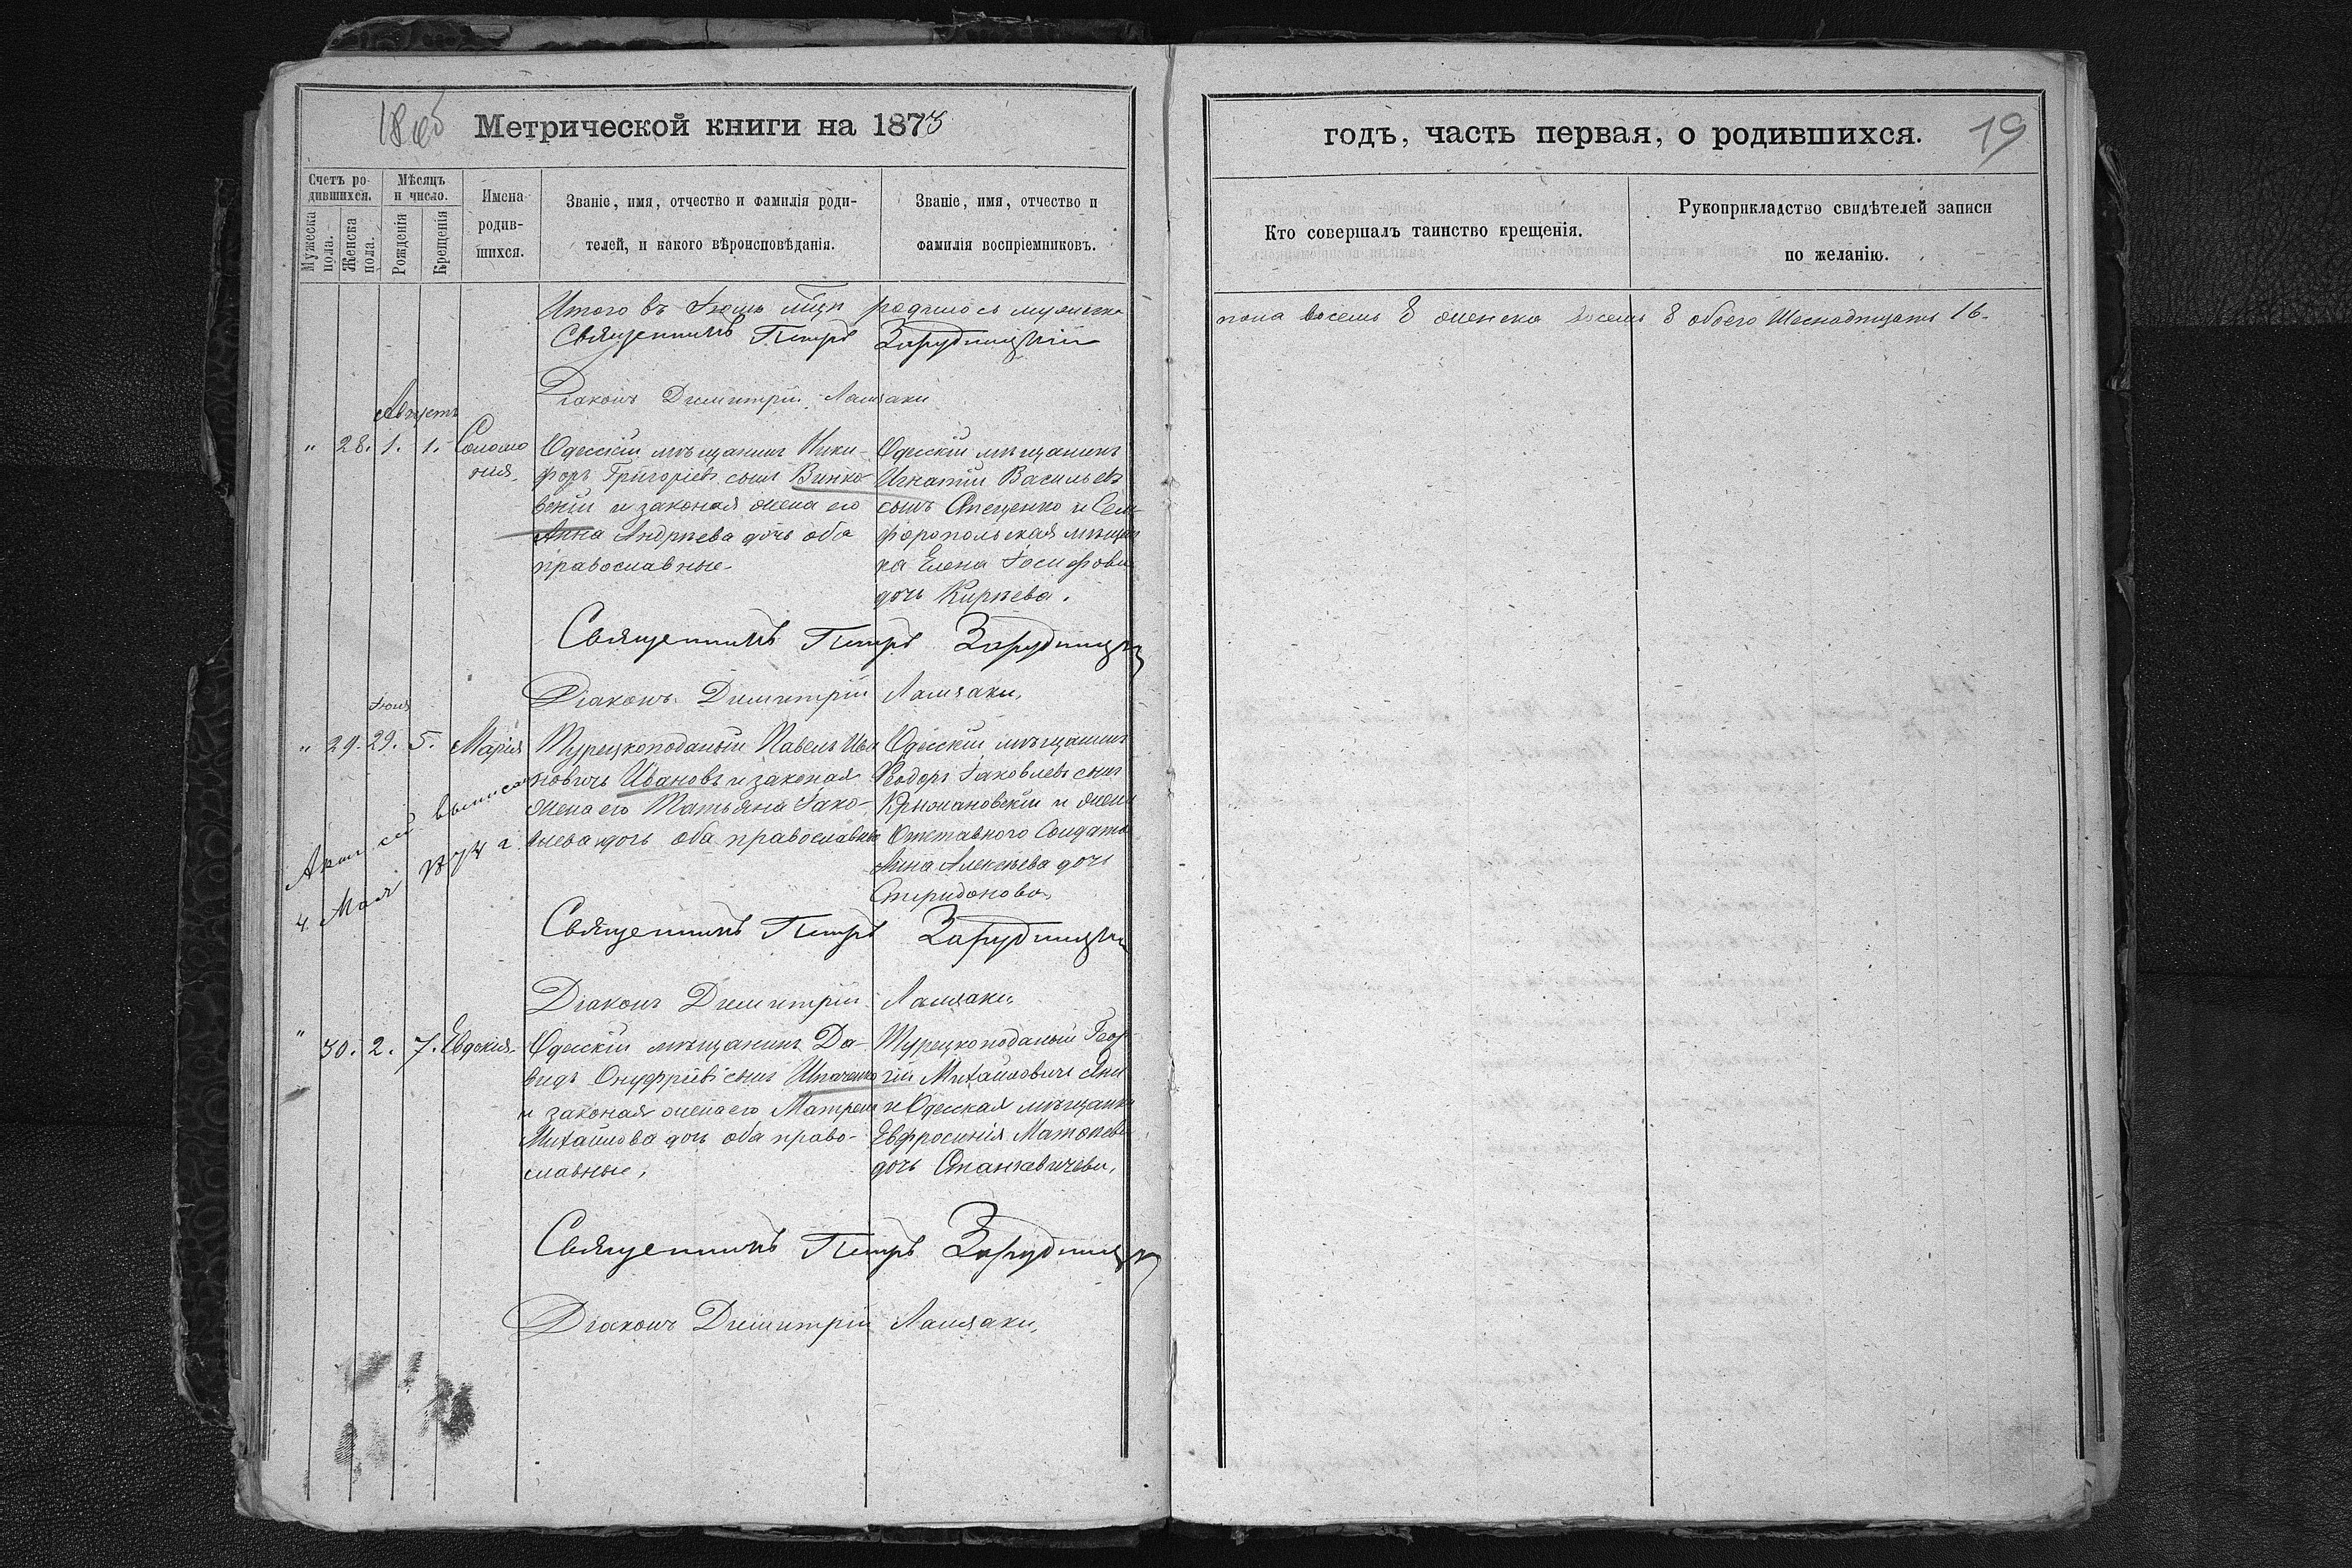 18об
Метрической книги на 1873
Счетъ ро-
дившихся.
Мужеска
пола.
Женска
пола.
Мѣсяцъ
и число.
Рожденія
Крещенія
Имена
родив-
шихся.
Званіе, имя, отчество и фамилія роди-
телей, и какого вѣроисповѣданія.
Званіе, имя, отчество и
фамилія воспріемниковъ.
Итого въ родилось мужеска
Священникъ Петръ Зарудницкій
Діаконъ Димитрій
Августъ
" 28. 1. 1. Соломо
нія.
Одесскій мѣщанинъ Ники-
форъ Григоріевъ сынъ Винко-
вскій и законая жена его
Анна Андрѣева дочь оба
православные
Одесскій мѣщанинъ
Игнатій Васильевъ
сынъ Стеценко и Сем
форопольская мѣщан
ка Елена Іосифова
дочь Кирѣева.
Священникъ Петръ Зарудницкій
Діаконъ Димитрій
Іюля
" 29. 29. 5. Марія
Турецкоподаный Павелъ Ива
новичъ Ивановъ и законая
жена его Татьяна Іако-
влева дочь оба православные
Одесскій мѣщанинъ
Ѳеодоръ Іаковлевъ сынъ
Крыжановскій и жена
Отставного Солдата
Анна Алексѣева дочь
Спиридонова,
Актъ сей выписан
4 Мая 1874 г
Священникъ Петръ Зарудницкій
Діаконъ Димитрій
" 30. 2. 7. Евдокія
Одесскій мѣщанинъ Да-
видъ Онуфріевъ сынъ
и законая жена его Матрена
Михайлова дочь оба право-
славные,
Турецкоподаный Геор
гій Михайловичъ
и Одесская мѣщанка
Евфросинія Матѳѣева
дочь Станкевичева,
Священникъ Петръ Зарудницкій
Діаконъ Димитрій
годъ, часть первая, о родившихся.
19
Кто совершалъ таинство крещенія.
Рукоприкладство свидѣтелей записи
по желанію.
пола восемь 8 женска восемь 8 обоего Шеснадцать 16.